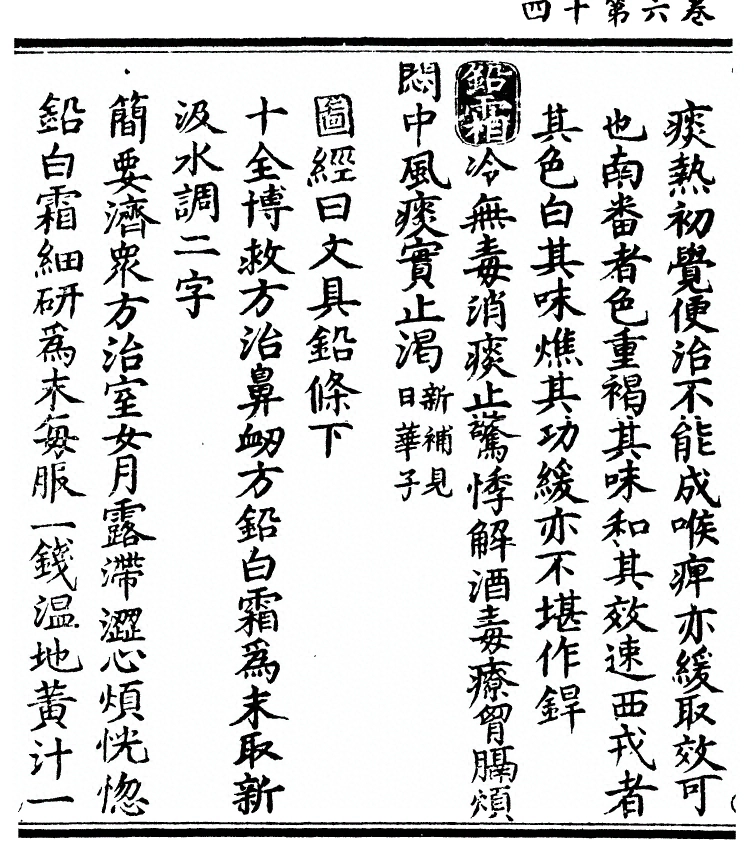 卷六第十四
痰熱初覺便治不能成喉痺亦緩取效可
也南番者色重褐其味和其效速西戎者
其色白其味燋其功緩亦不堪作銲
鉛霜冷無毒消痰止驚悸解酒毒療胷膈煩
悶中風痰實止渴新補見日華子
圖經曰文具鉛條下
十全博救方治鼻衂方鉛白霜爲末取新
汲水調二字
簡要濟衆方治室女月露滯澀心煩恍惚
鉛白霜細研爲末每服一錢温地黃汁一